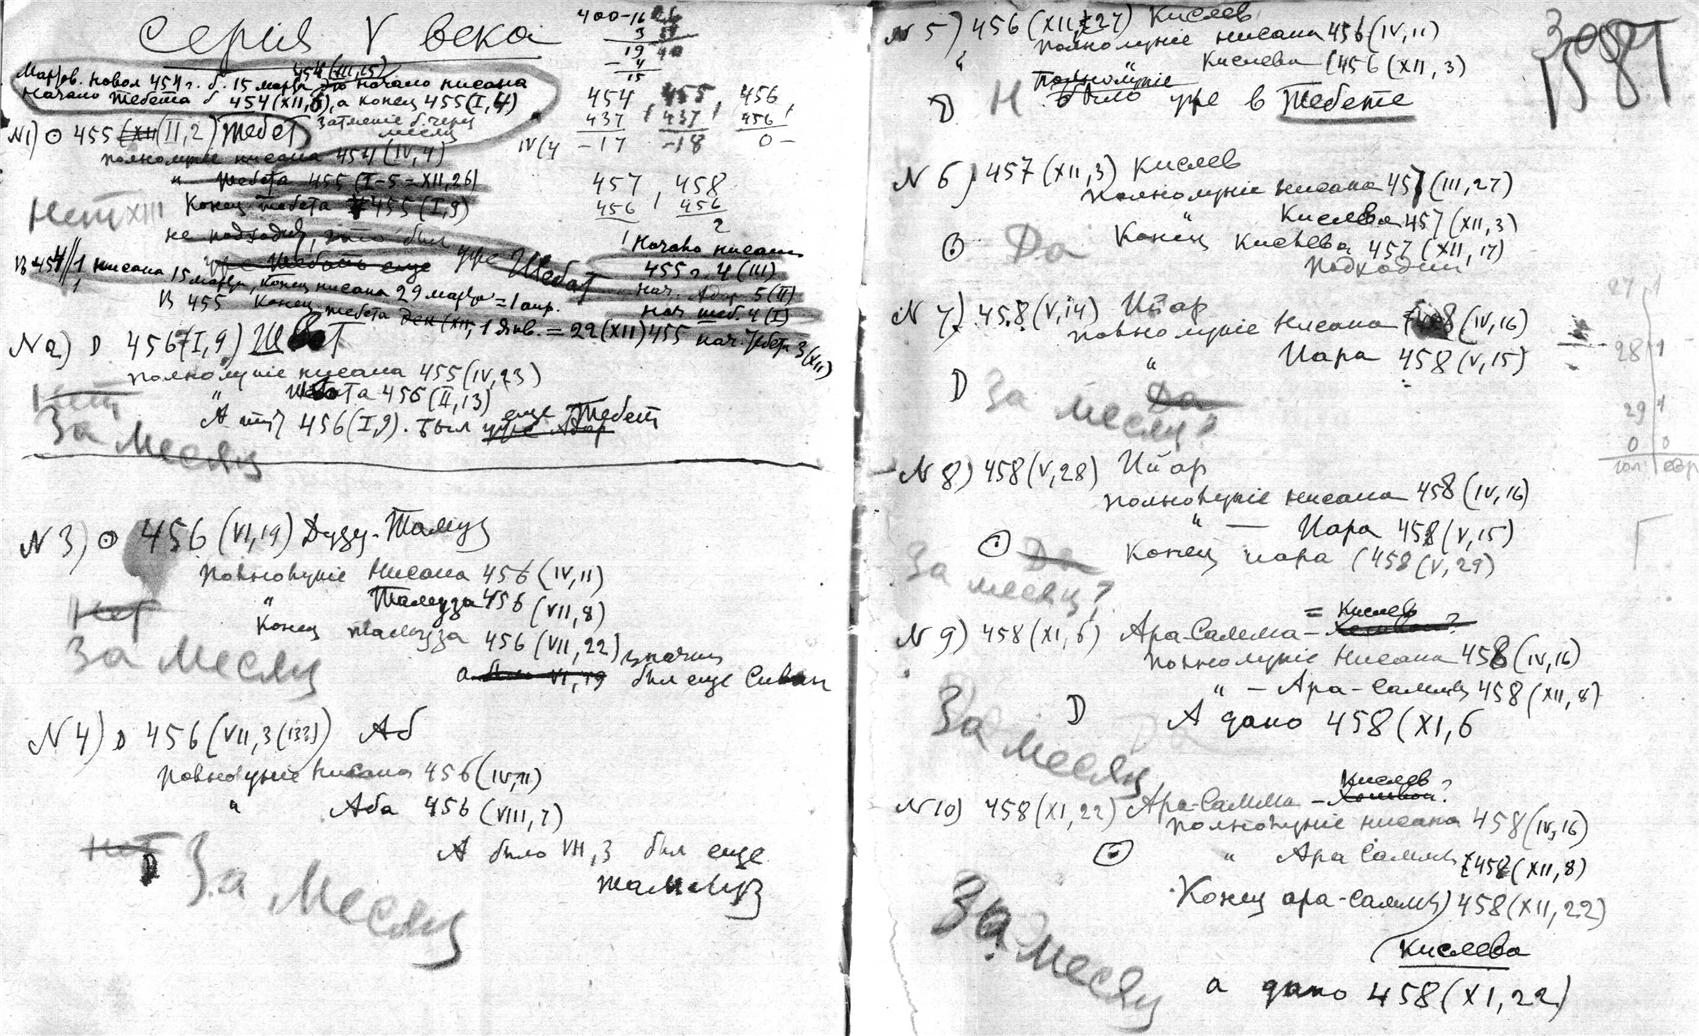 Серия V века
400-16
19
15
454, 455, 456,
437, 437, 456,
-17 -18 0-
457, 458
456, 456
2
454 (III,15)
Март. новол 454 г. б. 15 марта это начало нисана
Начало Тебета б 454 (XII,6), а конец 455 (I,4)
N1) ⊙ 455 (II,2) Тебет
Затмение б. через месяц
полнолуніе нисана 454 (IV,4)
" Тебета 455 (I-5=XII,26)
Конец Тебета 455 (I,9)
Нет XIII
не подходит, это был
уже Шебат
! Начало нисана
455 г. 4 (III)
нач. Адар. 5 (II)
нач шеб. 4 (I)
В 454 1 нисана 15 марта, конец нисана 29 марта = 1 апр.
В 455 конец тебета 1 Янв. = 22 (XII) 455 нач. Тебета 3 (XII)
N2) D 456 (I,9) Шебат
полнолуніе нисана 455 (IV,23)
" Шебата 456 (II,13)
А 456 (I,9). был еще Тебет
Нет
За месяц
N3) ⊙ 456 (VI,19) Дузу-Тамуз
Полнолуніе Нисана 456 (IV,11)
" Тамуза 456 (VII,8)
Конец тамуза 456 (VII,22), значит
а был VI,19 был еще Сиван
Нет
За месяц
N4) D 456 (VII,3 (133)) Аб
Полнолуніе нисана 456 (IV,11)
" Аба 456 (VIII,7)
А было VII,3 был еще
тамммуз
Нет
D За месяц
N5) 456 (XII,27) Кислев
полнолуніе нисана 456 (IV,11)
" " Кислева (456 (XII,3)
полнолуніе
D Н было уже в Тебете
3
1581
N6) 457 (XII,3) Кислев
Полнолуніе нисана 457 (III,27)
" Кислева 457 (XII,3)
⊙ Да Конец Кислева 457 (XII,17)
подходит
N7) 458 (V,14) Ийар
полнолуніе Нисана 458 (IV,16)
" Иара 458 (V,15)
D Да
За месяц?
27 1
28 1
29 1
0 0
N8) 458 (V,28) Ийар
полнолуніе нисана 458 (IV,16)
" — Иара 458 (V,15)
⊙ Да Конец иара (458 (V,29)
За месяц?
N9) 458 (XI,6) Ара-Самма – = Кислев
полнолуніе Нисана 458 (IV,16)
" – Ара-Самны 458 (XII,8)
D А дано 458 (XI,6
За месяц
N10) 458 (XI,22) Ара-Самма – Кислев?
полнолуніе нисана 458 (IV,16)
⊙ " Ара Самны (458 (XII,8)
Конец ара-самны) 458 (XII,22)
(Кислева
а дано 458 (XI,22)
За месяц